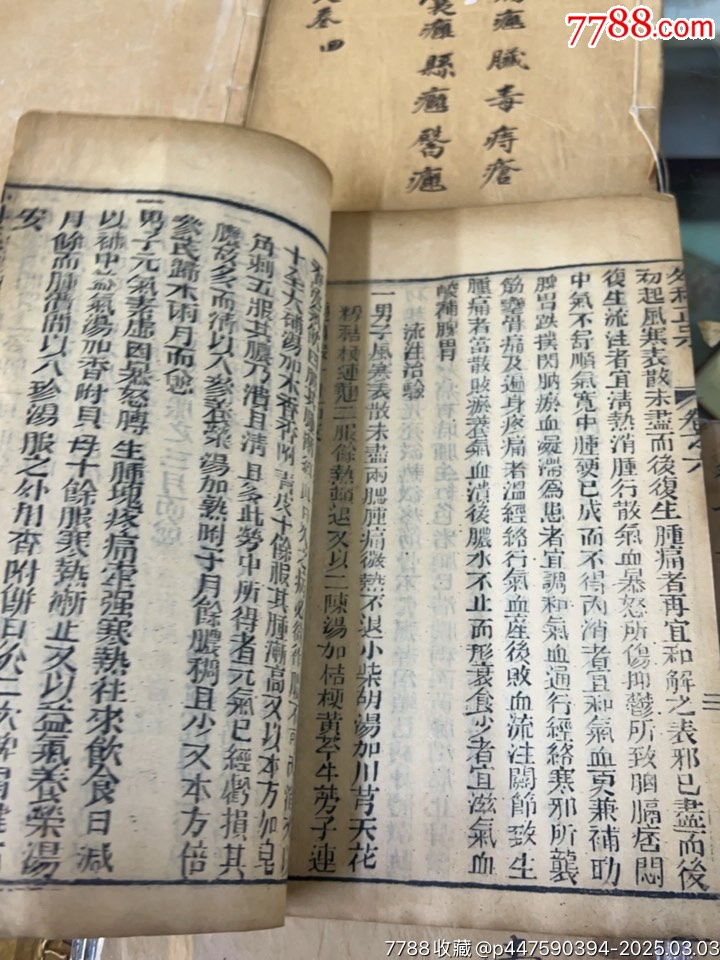 7788.com
臟毒痔瘡
癰縣癰臀癰
卷四
外科正宗
卷之六
初起風寒表散未盡而後復生腫痛者再宜和解之表邪已盡而後
復生流注者宜清熱消腫行散氣血暴怒所傷抑鬱所致胸膈痞悶
中氣不舒順氣寬中腫硬已成而不得內消者宜和氣血更兼補助
脾胃跌撲閃肭瘀血凝滯為患者宜調和氣血通行經絡寒邪所襲
筋攣骨痛及遍身疼痛者溫經絡行氣血產後敗血流注關節致生
腫痛者當散敗瘀養氣血潰後膿水不止而形衰食少者宜滋氣血
峻補脾胃
流注治驗
一男子風寒表散未盡兩腮腫痛微熱不退小柴胡湯加川芎天花
粉黏梗連翹二服餘熱頓退又以二陳湯加桔梗黃芩牛蒡子連
十全大補湯加木香香附
十餘服其腫漸高又以本方加皂
角刺五服其膿乃潰且清且多此勞中所得者元氣已經虧損其
膿故多而清以八珍養榮湯加熟附子月餘膿稠且少又本方倍
參芪歸朮兩月而愈
一男子元氣素虛因暴怒膊生腫塊疼痛牽強寒熱往來飲食日減
以補中益氣湯加香附貝母十餘服寒熱漸止又以益氣養榮湯
月餘而腫潰間以八珍湯服之外用香附餅日熨二次脾胃健
安
7788收藏 @p447590394-2025.03.03